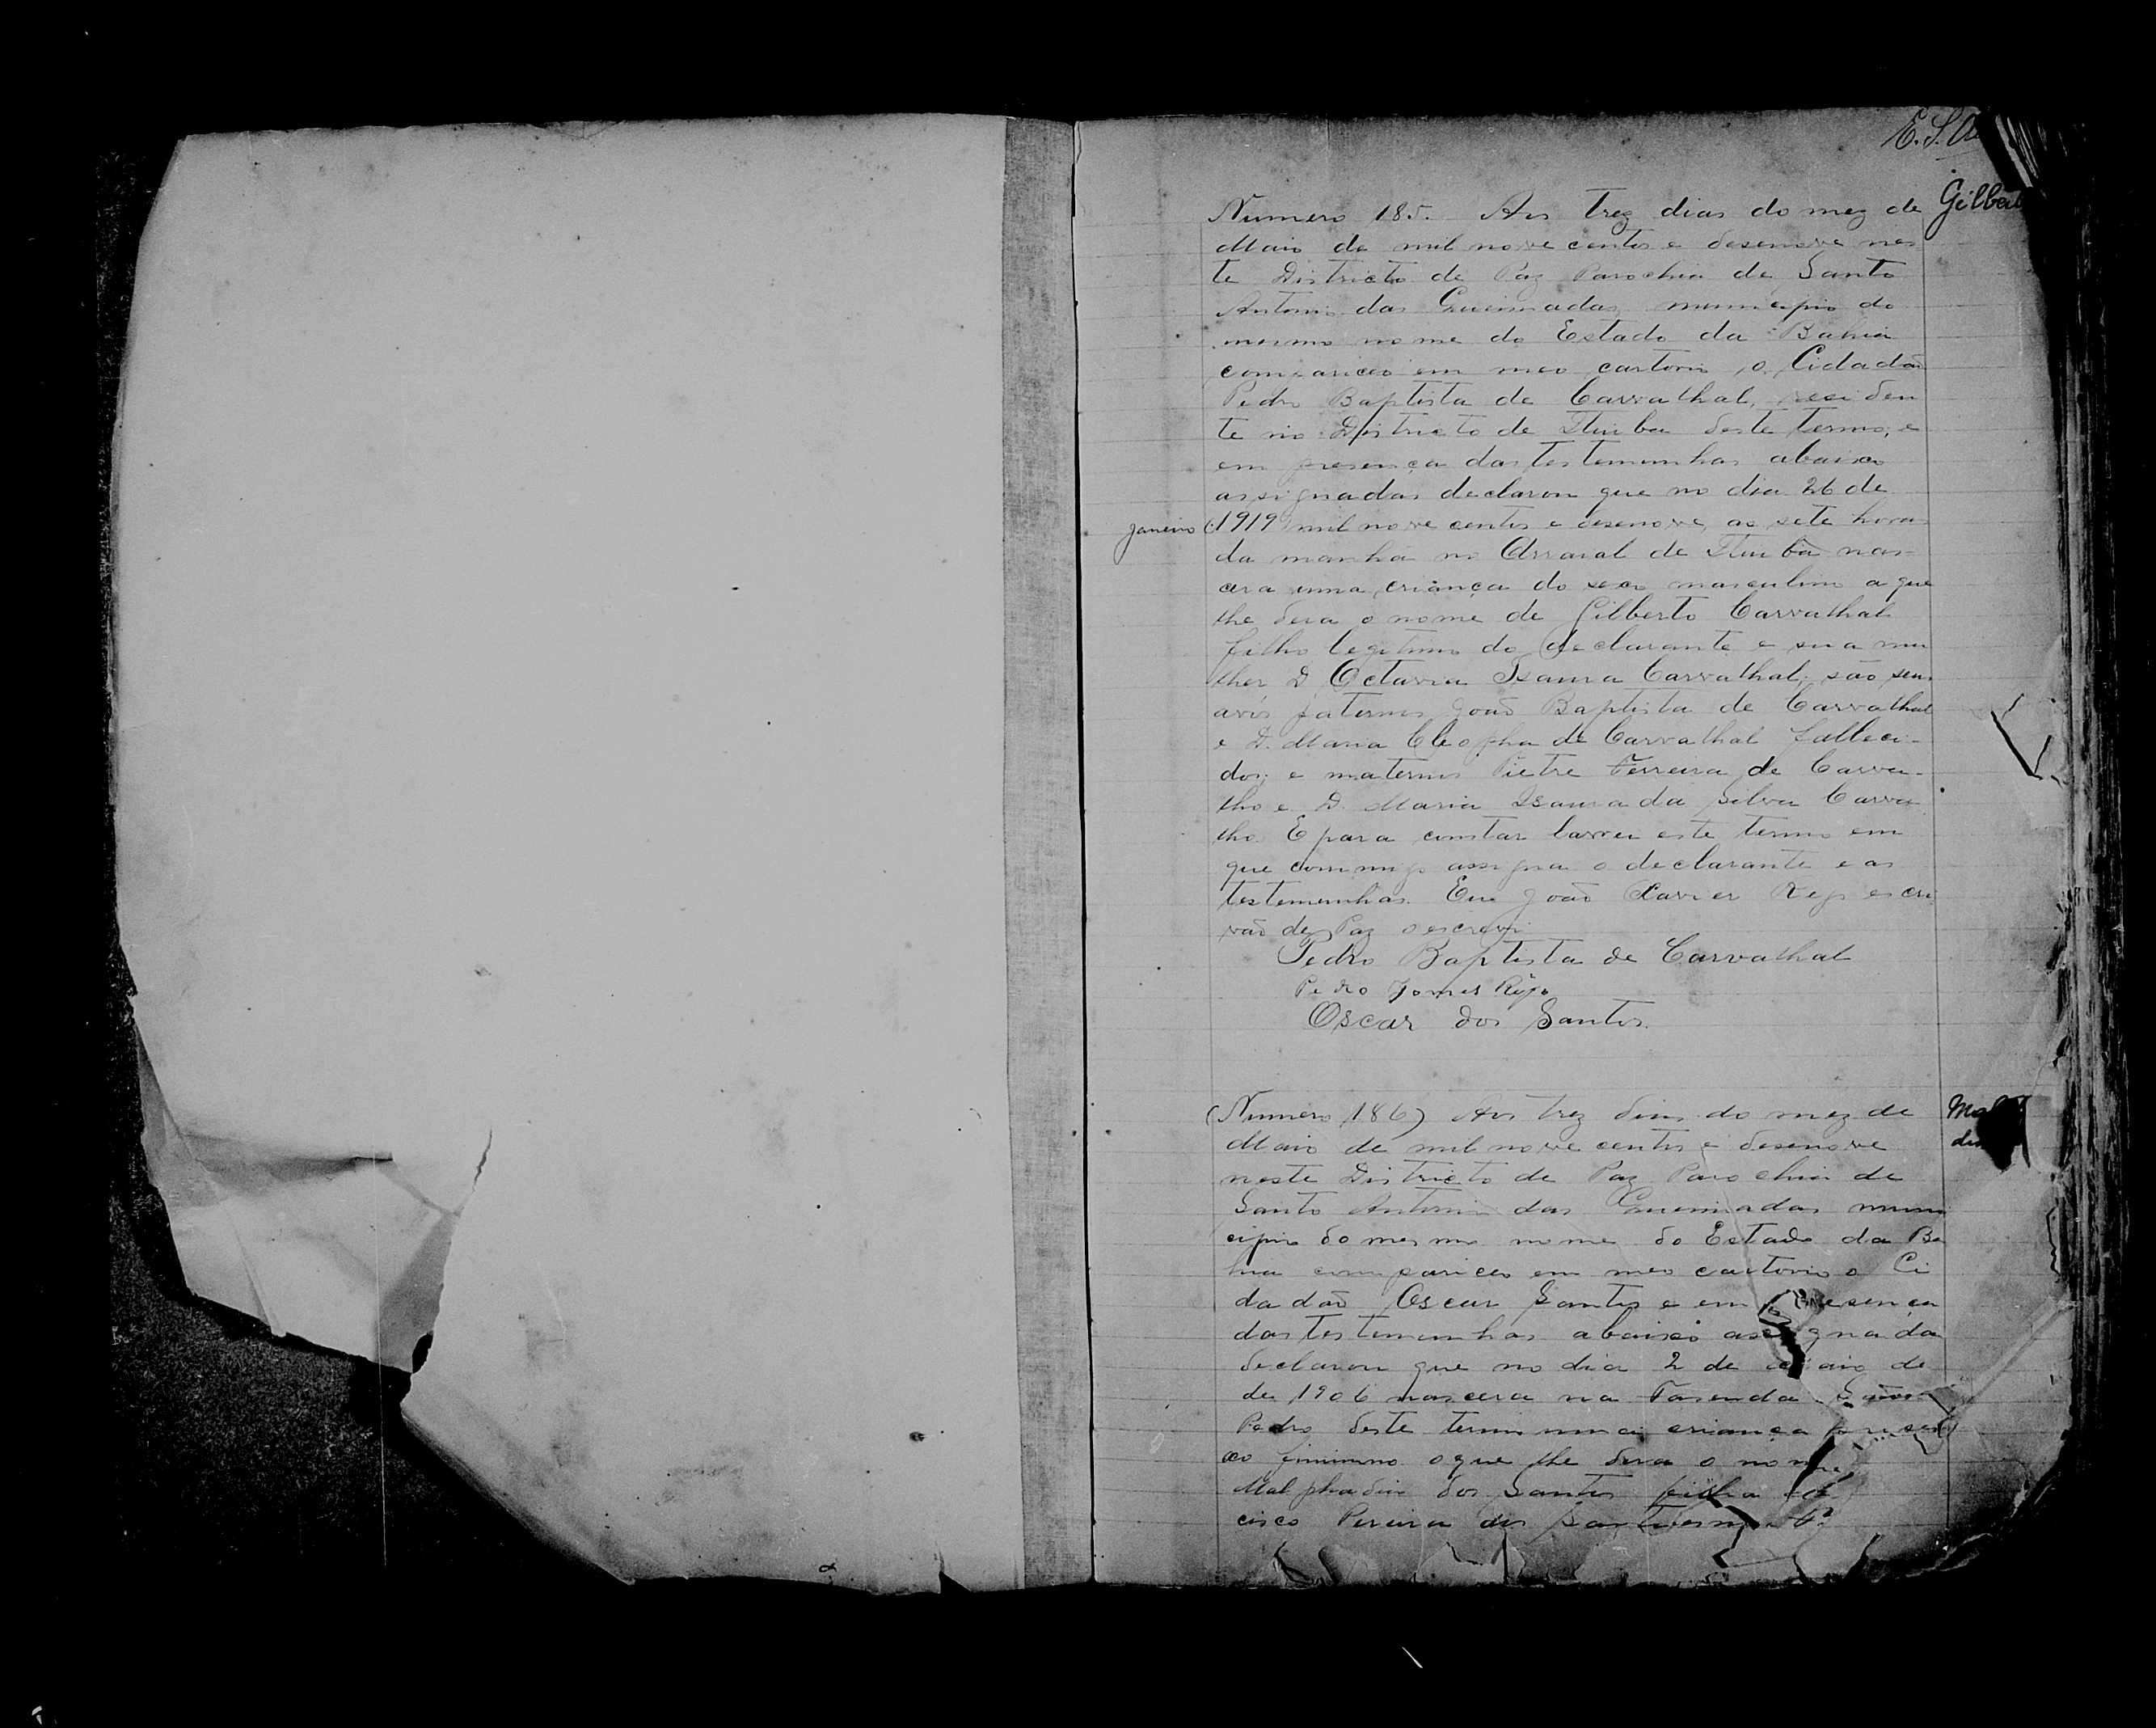 E. S.
Gilber
Numero 185. Aos trez dias do mez de
Maio de mil nove centos e desenove nes
te Districto de Paz Parochia de Santo
Antonio das Queimadas, municipio do
mesmo nome do Estado da Bahia
compariceo em meo cartorio o Cidadão
Pedro Baptista de Carvalhal, residen
te no Districto de Itiuba deste termo, e
em presença das testemunhas abaixo
assignadas declarou que no dia 26 de
janeiro (1919) mil nove centos e desenove, as sete horas
da manhã no Arraial de Itiuba nas-
cera uma criança do sexo masculino a que
lhe dera o nome de Gilberto Carvalhal
filho legitimo do declarante e sua mu
lher D. Octavia Isaura Carvalhal; são seus
avós paternos João Baptista de Carvalhal
e D. Maria Cleopha de Carvalhal falleci-
dos; e maternos Pietre Ferreira de Carva-
lho e D. Maria Isaura da Silva Carva
lho. E para constar lavrei este termo em
que commigo assigna o declarante e as
testemunhas. Eu João Xavier Rego escri
vão de Paz o escrevi
Pedro Baptista de Carvalhal
Pedro Gomes Rêgo
Oscar dos Santos.
(Numero 186) Aos trez dias do mez de
Maio de mil nove centos e desenove
neste Districto de Paz Parochia de
Santo Antonio das Queimadas muni
cipio do mesmo nome do Estado da Ba
hia compariceo em meo cartorio o Ci
dadão Oscar Santos e em presença
das testemunhas abaixo assignada
declarou que no dia 2 de de
de 1906 nascera na Fasenda São
Pedro deste termo uma criança
xo fiminino o que lhe dera o nome
Malphadia dos Santos filha
cisco Pereira dos Santos